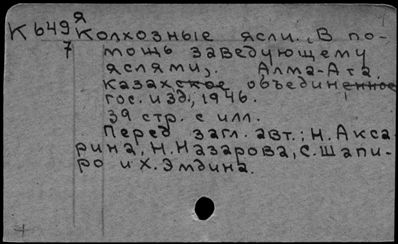 я
К 649 Колхозные ясли. (В по-
7 мощь заведующему
яслями). Алма-Ата,
Казахское объединенное
гос. изд., 1946.
39 стр. с илл.
Перед загл. авт.: Н. Акса-
рина, Н. Назарова, С. Шапи-
ро и Х. Эмдина.